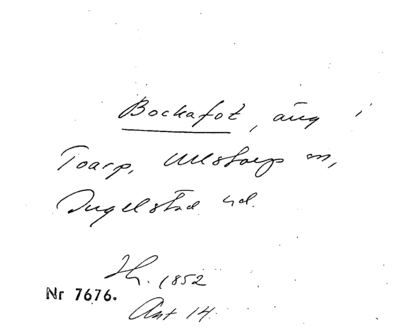 Bockafot, äng i
Toarp, Ullstorps sn,
Ingelstad hd.
Th. 1852
Nr 7676.
Ant 14